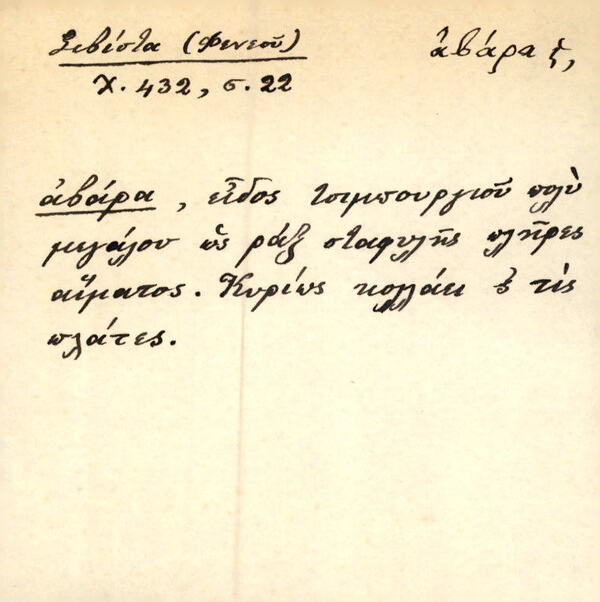 Σιβίστα (Φενεοῦ)
ἀβάρα ἡ,
Χ. 432, σ. 22
ἀβάρα, εἶδος τσιμπουργιοῦ πολὺ
μεγάλου ὡς ράξ σταφυλῆς πλῆρες
αἵματος. Κυρίως κολλάει 'ς τὶς
πλάτες.